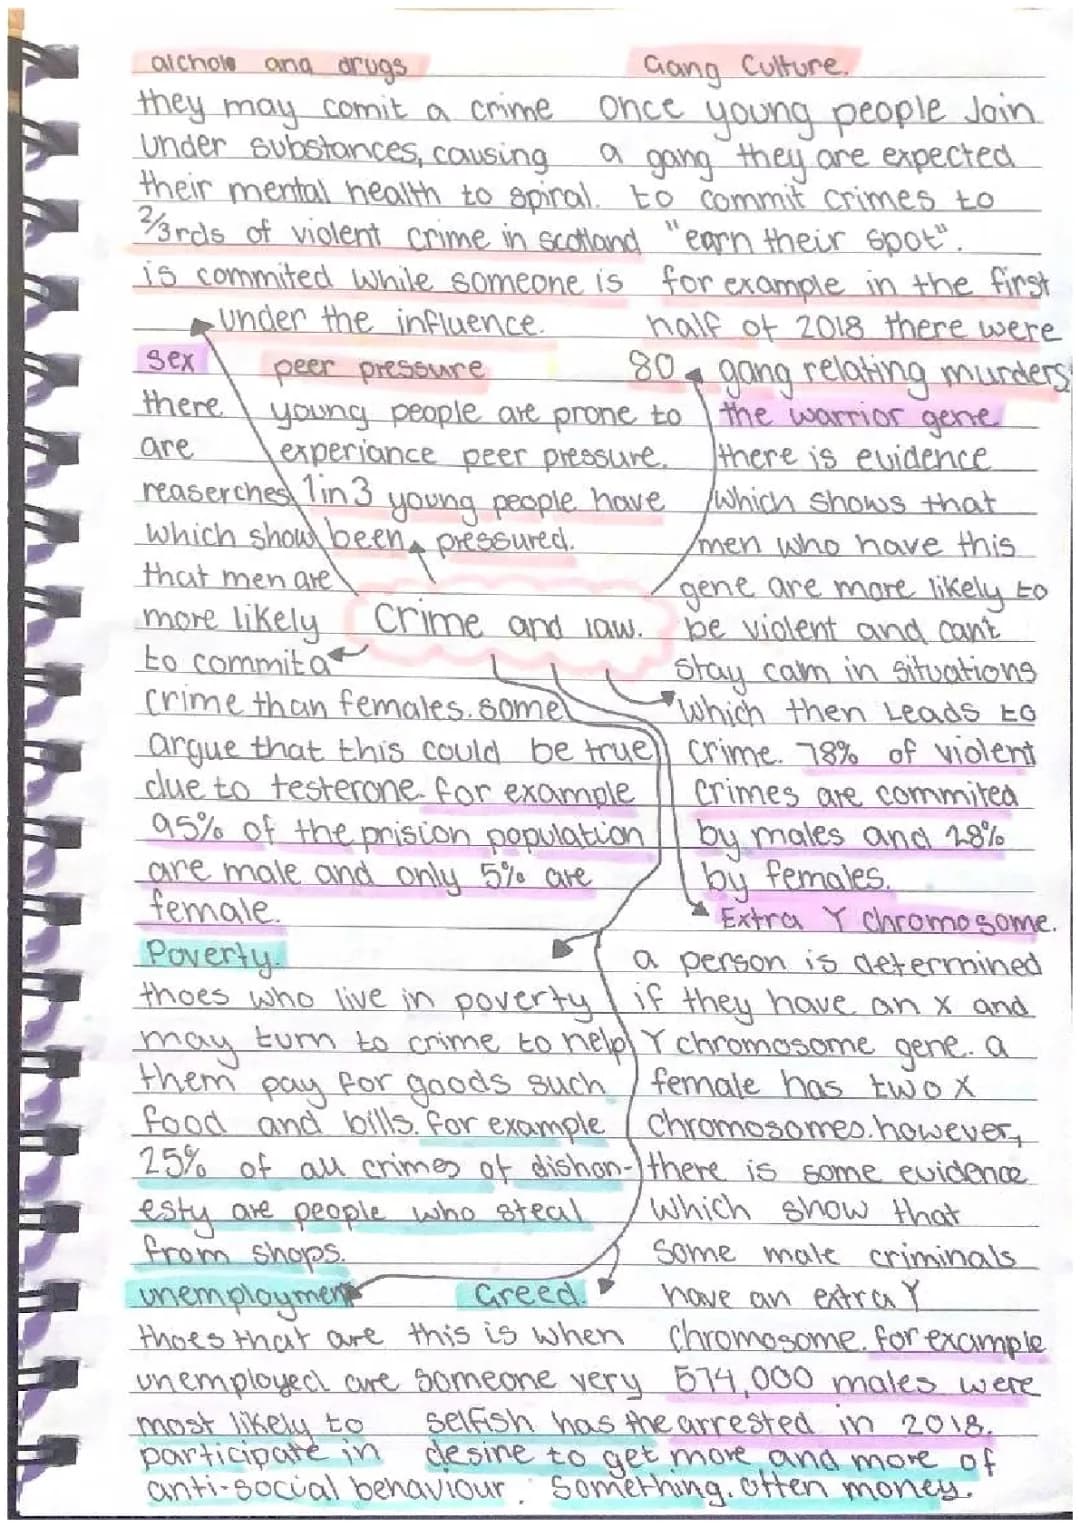 alchole and drugs
they may comit a crime
under substances, causing
their mental health to spiral.
2/3rds of violent crime in scotland
is commited while someone is
under the influence.
Gang Culture.
Once young people Join
a gang they are expected
to commit crimes to
"earn their spot".
for example in the first
half of 2018 there were
80 gang relating murders
sex
there
are
reaserches
which show
that men are
more likely
to commit a
crime than females. some
argue that this could be true
due to testerone. for example
95% of the prision population
are male and only 5% are
female.
peer pressure
young people are prone to
experiance peer pressure.
1 in 3 young people have
been pressured.
the warrior gene
there is evidence
which shows that
men who have this
gene are more likely to
be violent and can't
stay calm in situations
which then Leads to
crime. 78% of violent
crimes are commited
by males and 28%
by females.
Crime and law.
Extra Y chromosome.
a person is determined
if they have an x and
Y chromosome gene. a
female has two x
chromosomes. however,
there is some evidence
which show that
some male criminals
have an extra Y
chromosome. for example
574,000 males were
arrested in 2018.
Poverty.
thoes who live in poverty
may turn to crime to help
them pay for goods such
food and bills. for example
25% of all crimes of dishon-
esty are people who steal
from shops.
unemployment
thoes that are
unemployed are
most likely to
participate in
anti-social behaviour.
Greed.
this is when
someone very
selfish has the
desire to get more and more of
something. often money.